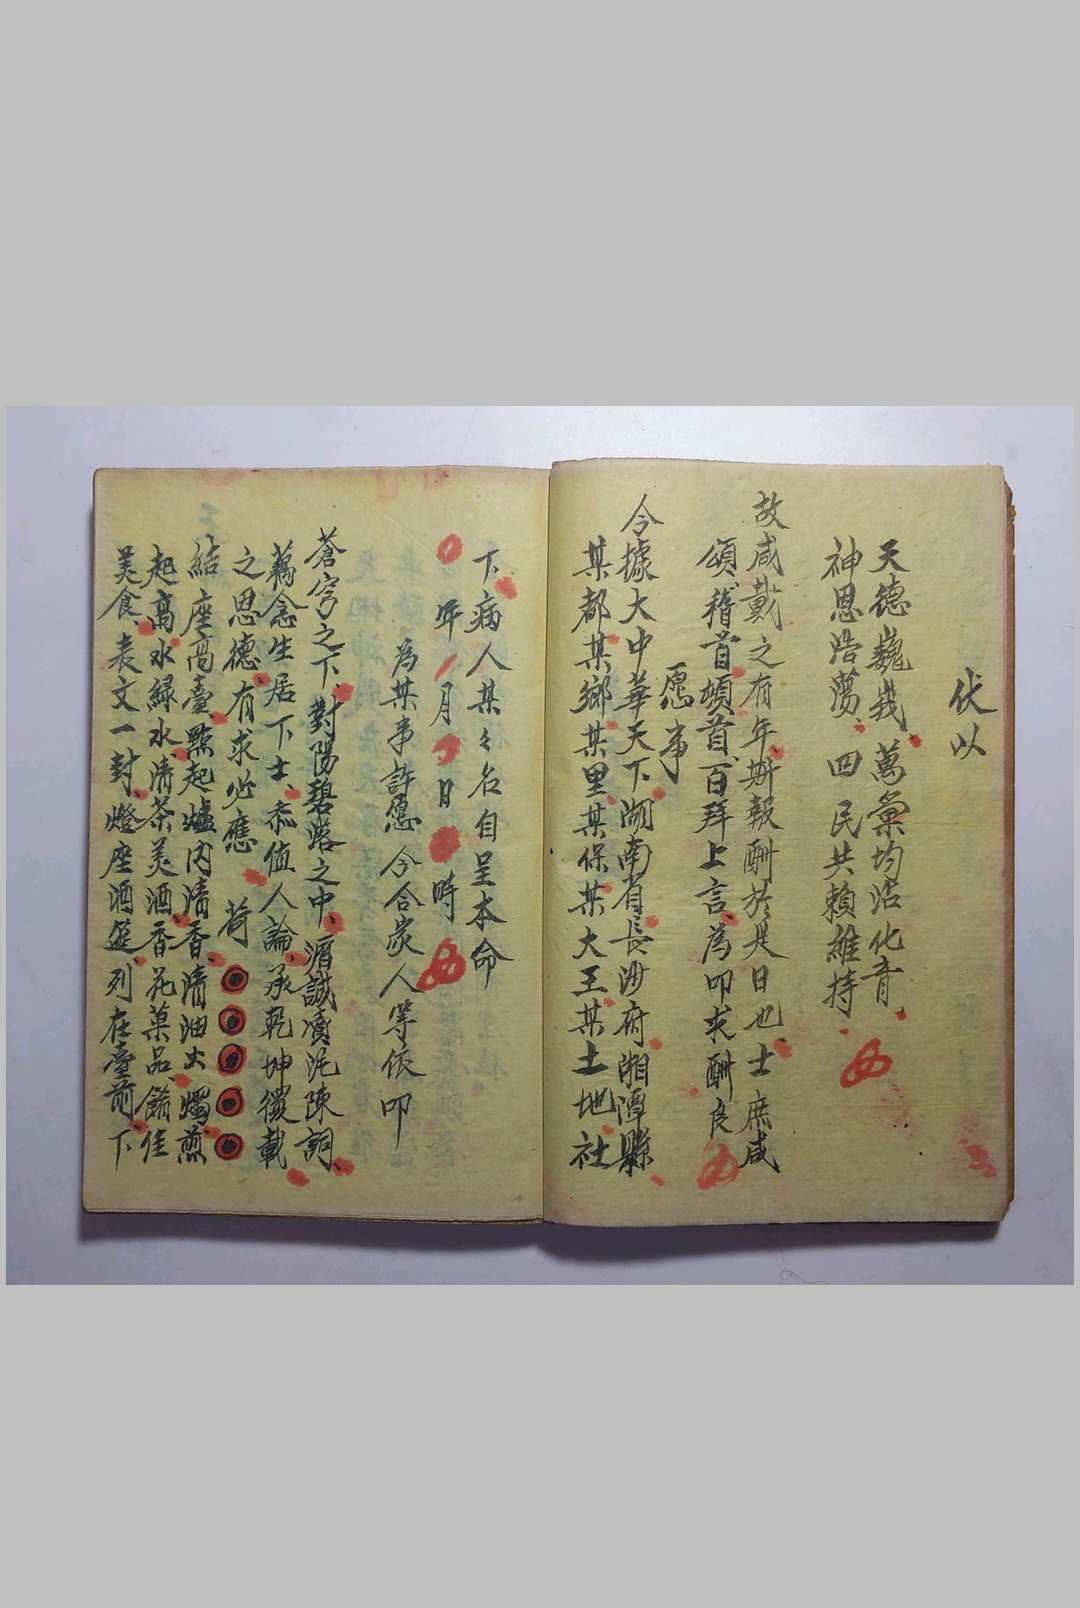 伏以
天德巍峩萬彙均沾化育
神恩浩蕩四民共賴維持
故咸戴之有年斯報酬於是日也士庶咸
頌稽首頓首百拜上言為叩求酬良
愿事
今據大中華天下湖南省長沙府湘潭縣
某都某鄉某里某保某大王某土地社
下病人某々名自呈本命
年 月 日 時
為某事許愿今合家人等依叩
蒼穹之下對陽碧落之中涓誠瀆泥陳詞
藕念生居下士忝值人論承乾坤覆載
之恩德有求必應 荷
結座高臺點起爐內清香清油出燭煎
起高水緑水清茶美酒香花菓品餚佳
美食表文一封燈座酒筵列在臺前下